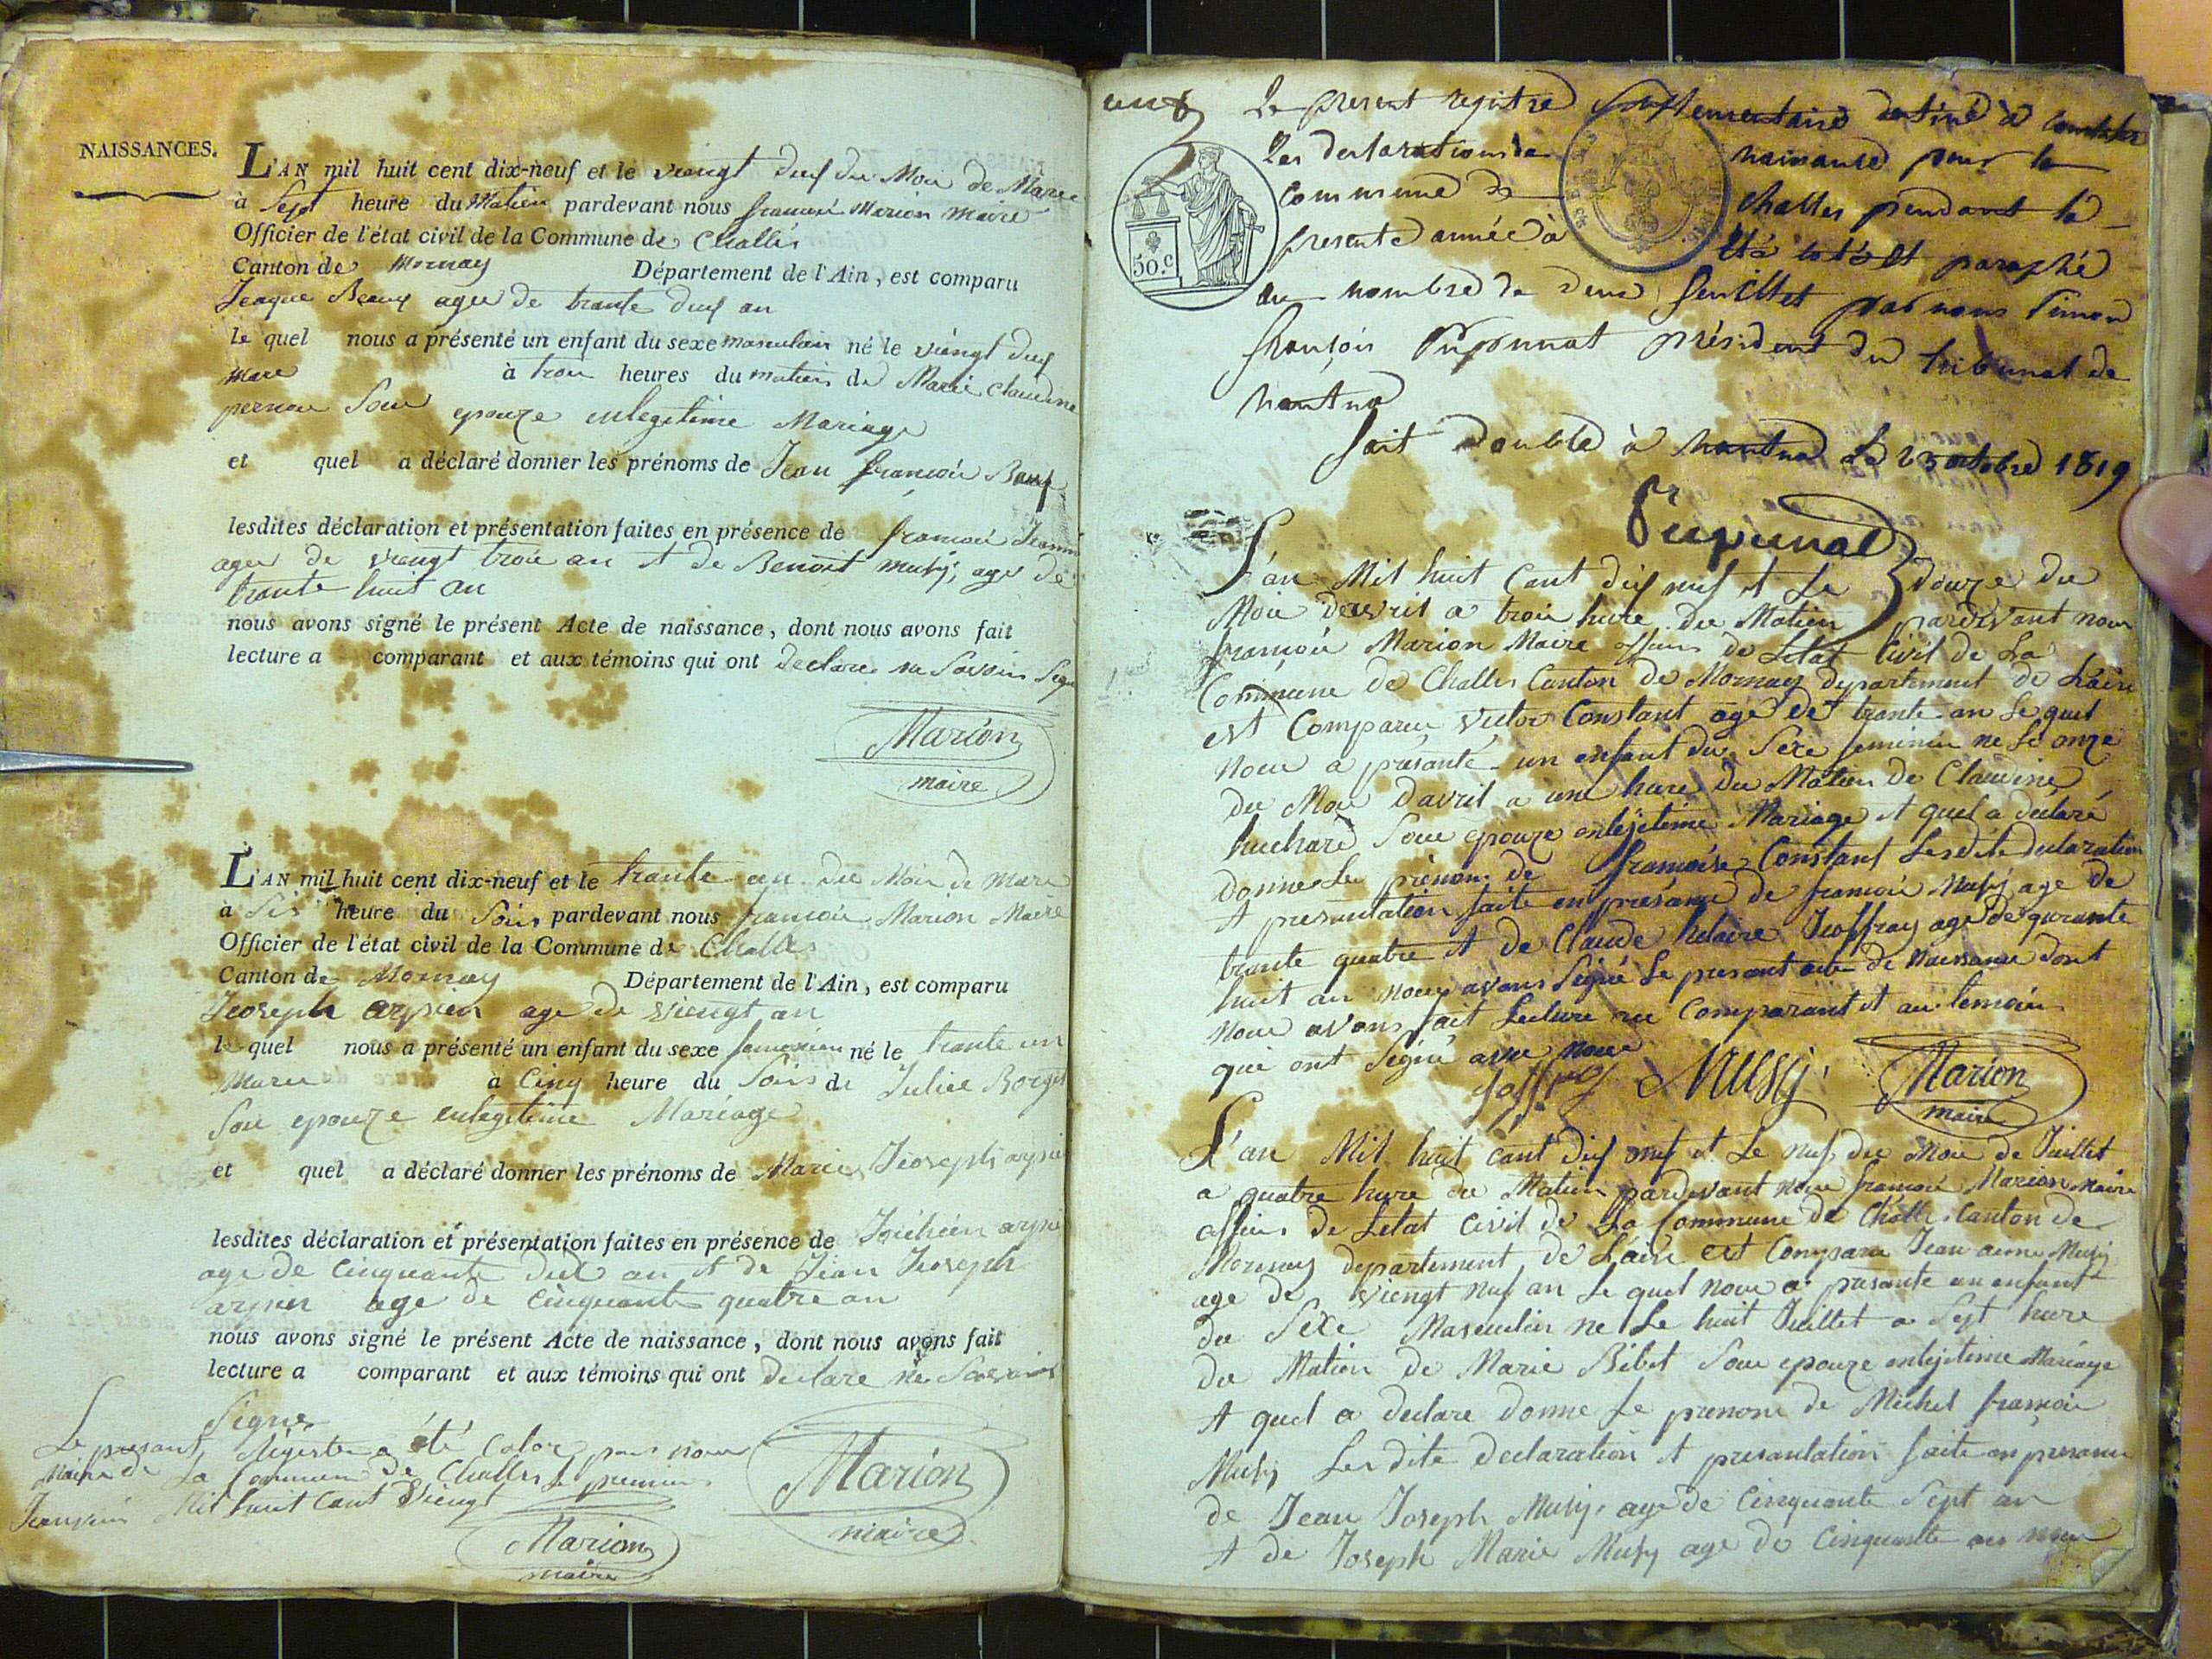 NAISSANCES.
L'AN mil huit cent dix-neuf et le viengt deuf du Moi de Marce
à Sept heure du Matien pardevant nous francoi Marion maire
Officier de l'état civil de la Commune de Challes
Canton de Mornay Département de l'Ain, est comparu
Jeaque Beauf agee de trante deuf an
le quel nous a présenté un enfant du sexe masculain né le viengt deuf
mare à trou heures du matien de Marie Claudine
pernou Sou epouze enlegitime Mariage
et quel a déclaré donner les prénoms de Jean francoi Bauf
lesdites déclaration et présentation faites en présence de francoi
agee de viengt troie an et de Benoit musy, age de
trante huit an
nous avons signé le présent Acte de naissance, dont nous avons fait
lecture a comparant et aux témoins qui ont declare ne Savoir Signe
Marion
maire
L'AN mil huit cent dix-neuf et le trante un du Moi de mare
à Sis heure du Soir pardevant nous francoi Marion Maire
Officier de l'état civil de la Commune de Challes
Canton de Mornay Département de l'Ain, est comparu
Jeoseph arpien age de viengt an
le quel nous a présenté un enfant du sexe né le trante un
Marce à Cinq heure du Soir de Julie Borget
Sou epouze enlegitime Mariage
et quel a déclaré donner les prénoms de Marie Jeoseph arpien
lesdites déclaration et présentation faites en présence de
age de Cinquante deus an et de Jean Jeoseph
arpien age de cinquante quatre an
nous avons signé le présent Acte de naissance, dont nous avons fait
lecture a comparant et aux témoins qui ont declare ne Savoir
Signe
Le presant Regestre a été Clos par nous
Maire de La Commune de Challes le premier
Janvier Mil huit Cant Viengt
Marion
maire
Marion
maire
un
Le present registre supplementaire destiné à constater
Les declarations de naissance pour la
commune de Challes pendant la
presente année à été coté et paraphé
au nombre de deux feuillet par nous Simon
françois Pupunat président du tribunal de
nantua
fait double à nantua le 23 octobre 1819
Pupunat
50.c
L'an Mil huit Cant dif neuf et Le douze du
Moi davril a troi hure du Matien pardevant nous
francoi Marion Maire officier de Letat Civil de La
Commune de Challes Canton de Mornay departement de Lain
est Comparu Victor Constant age de trante an Le quel
nous a presante un enfant du Sexe feminin ne Le onze
du Moi davril a une hure du Matien de Claudine
huchard Sou epouze enlejitime Mariage et quel a declaré
donner Le prenom de francoise Constant Lesdite declaration
et presentation faite en presance de francoi Musy age de
trante quatre et de Claude hilaire Jeoffray age de qurante
huit an nous avons Signé Le presant acte de naissance dont
nous avons fait Lecture au Comparant et au temoin
qui ont Signé avec nous
Joffray Musy Marion
maire
L'an Mil huit cant dif neuf et Le neuf du Moi de Juillet
a quatre hure du Matin pardevant nous francoi Marion Maire
officier de Letat Civil de La Commune de Challes Canton de
Mornay departement de Lain est Comparu Jean aime Musy
age de viengt neuf an Le quel nous a presante un enfant
du Sexe Masculin ne Le huit Juillet a Sept hure
du Matien de Marie Bibet Sou epouze enlejitime Mariage
et quel a declare donne Le prenom de Michel francoi
Musy Lesdite declaration et presantation faite en presance
de Jean Joseph Musy age de Cinquante Sept an
et de Joseph Marie Musy age de Cinquante an nous